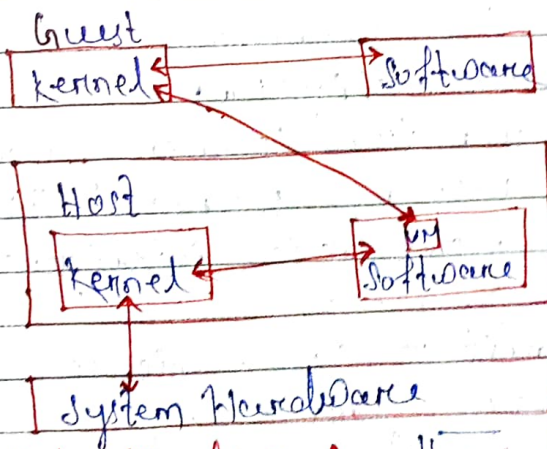 Guest
Kernel Software
Host
VM
Kernel Software
System Hardware